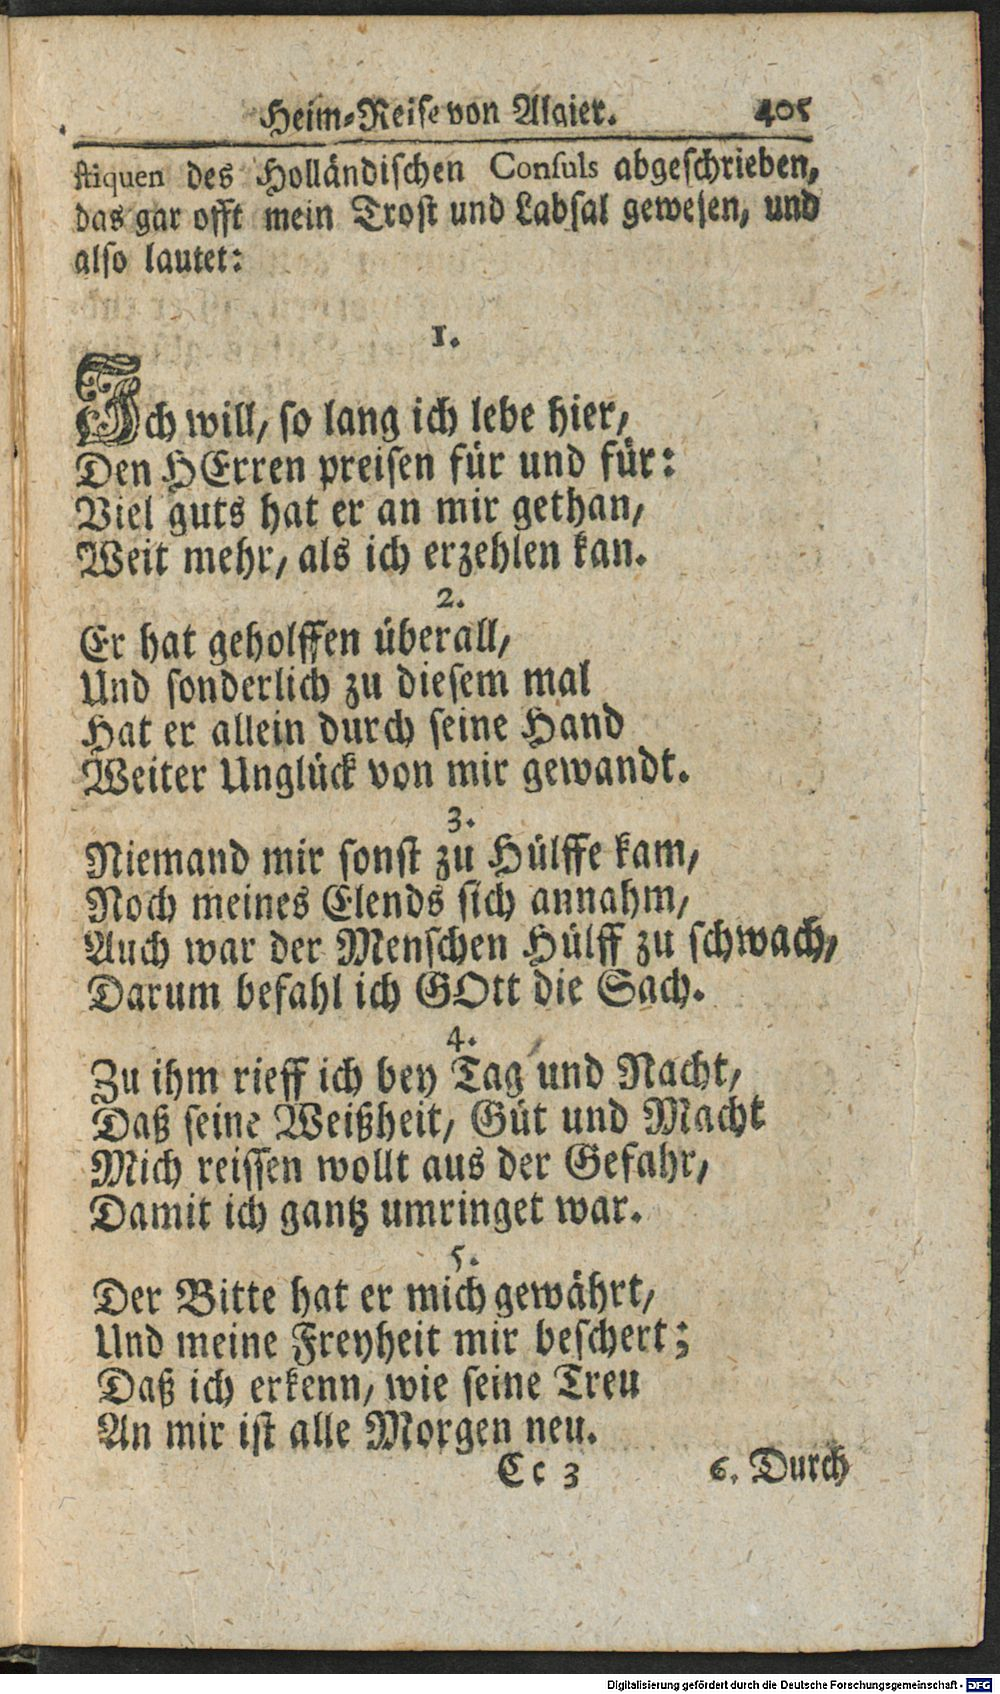 Heim-Reise von Algier. 405
stiquen des Holländischen Consuls abgeschrieben,
das gar offt mein Trost und Labsal gewesen, und
also lautet:
1.
Ich will, so lang ich lebe hier,
Den HErren preisen für und für:
Viel guts hat er an mir gethan,
Weit mehr, als ich erzehlen kan.
2.
Er hat geholffen überall,
Und sonderlich zu diesem mal
Hat er allein durch seine Hand
Weiter Unglück von mir gewandt.
3.
Niemand mir sonst zu Hülffe kam,
Noch meines Elends sich annahm,
Auch war der Menschen Hülff zu schwach,
Darum befahl ich GOtt die Sach.
4.
Zu ihm rieff ich bey Tag und Nacht,
Daß seine Weißheit, Güt und Macht
Mich reissen wollt aus der Gefahr,
Damit ich gantz umringet war.
5.
Der Bitte hat er mich gewährt,
Und meine Freyheit mir beschert;
Daß ich erkenn, wie seine Treu
An mir ist alle Morgen neu.
Cc 3 6. Durch
Digitalisierung gefördert durch die Deutsche Forschungsgemeinschaft - DFG